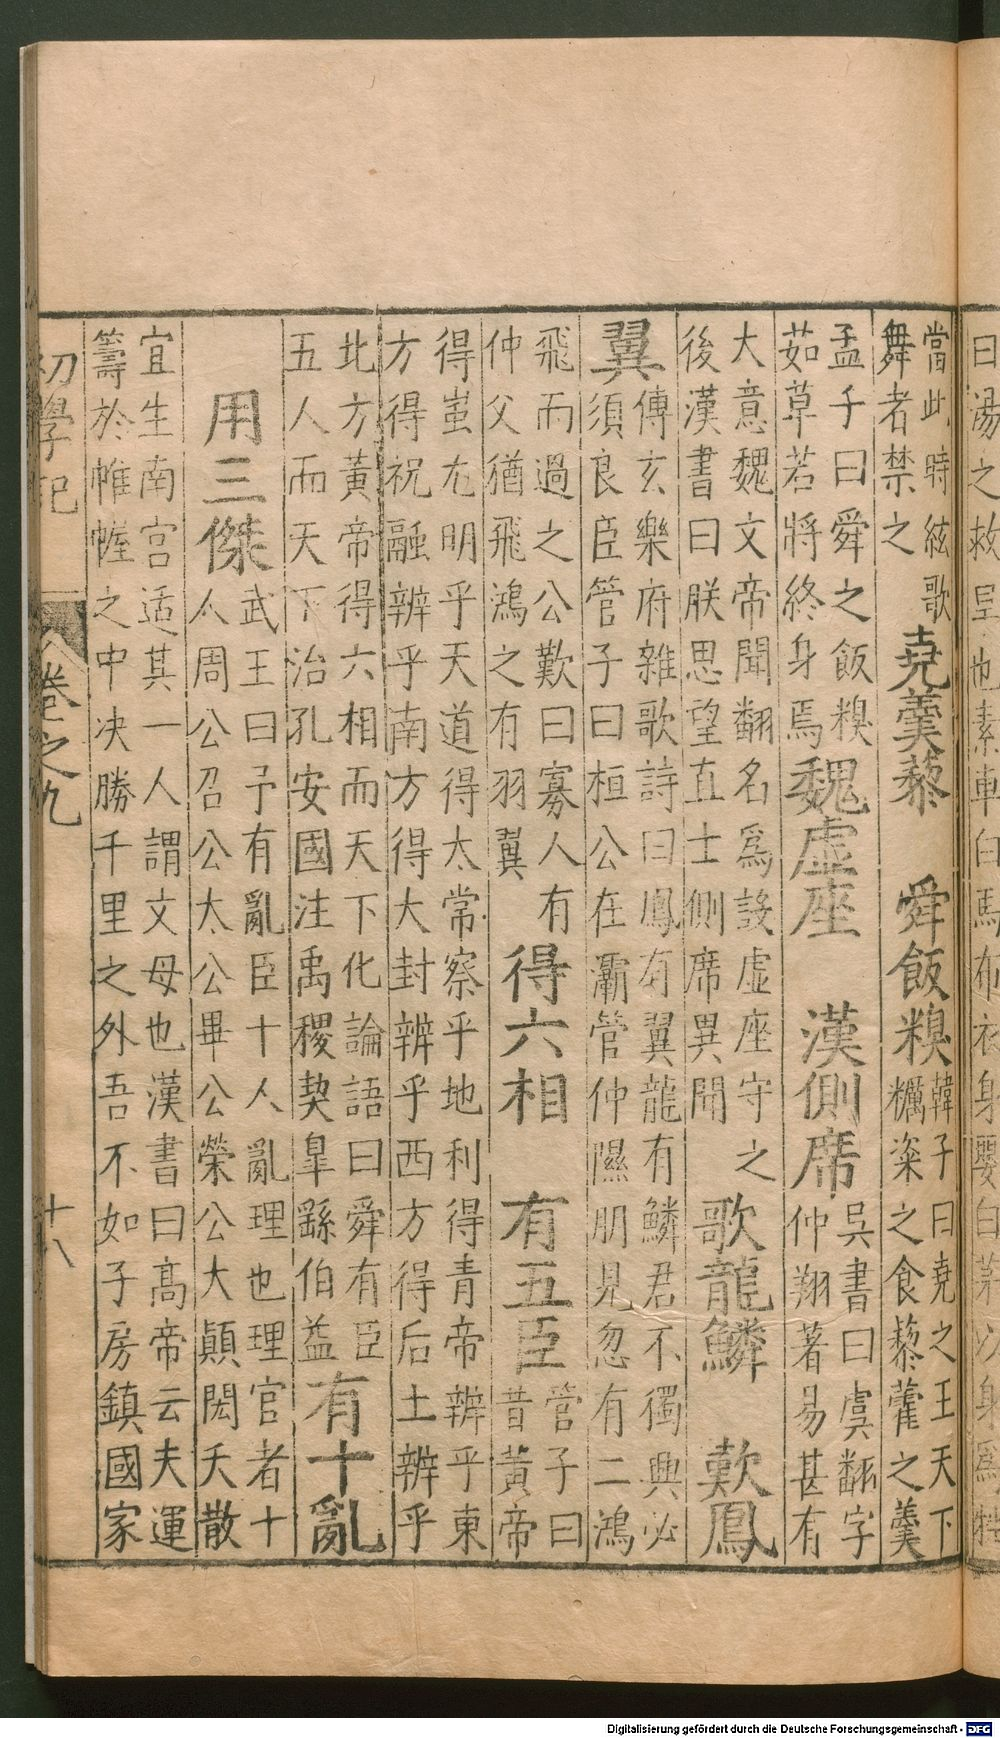 曰湯之救旱也素車白馬布衣身嬰白茅以身爲牲
當此時絃歌
舞者禁之
堯羹藜　舜飯糗
韓子曰堯之王天下
糲粢之食藜藿之羹
孟子曰舜之飯糗
茹草若將終身焉
魏虛座　漢側席
吳書曰虞翻字
仲翔著易甚有
大意魏文帝聞翻名爲設虛座守之
後漢書曰朕思望直士側席異聞
歌龍鱗　歎鳳
翼
傳玄樂府雜歌詩曰鳳有翼龍有鱗君不獨興必
須良臣管子曰桓公在灞管仲隰朋見忽有二鴻
飛而過之公歎曰寡人有
仲父猶飛鴻之有羽翼
得六相　有五臣
管子曰
昔黃帝
得蚩尤明乎天道得太常察乎地利得青帝辨乎東
方得祝融辨乎南方得大封辨乎西方得后土辨乎
北方黃帝得六相而天下化論語曰舜有臣
五人而天下治孔安國注禹稷契臯繇伯益
有十亂
用三傑
武王曰予有亂臣十人亂理也理官者十
人周公召公太公畢公榮公大顛閎夭散
宜生南宫适其一人謂文母也漢書曰高帝云夫運
籌於帷幄之中决勝千里之外吾不如子房鎮國家
初學記　卷之九　十八
Digitalisierung gefördert durch die Deutsche Forschungsgemeinschaft - DFG